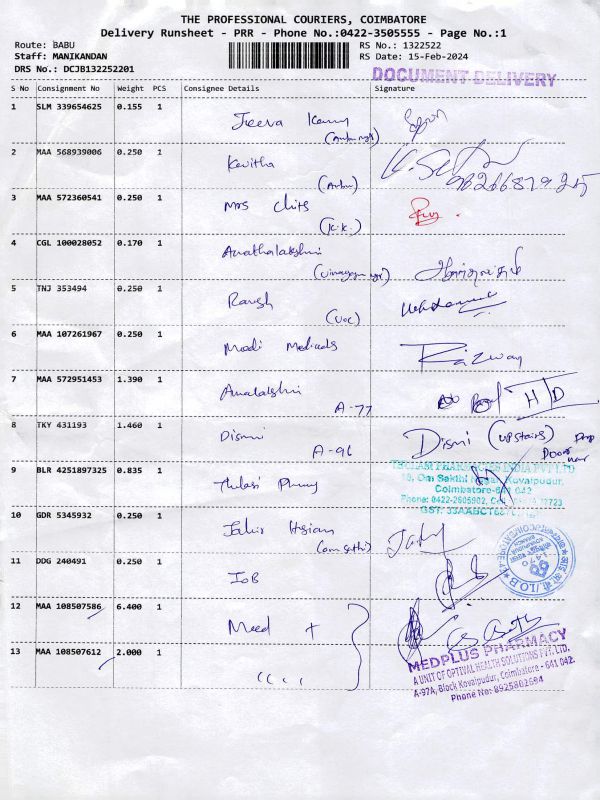 THE PROFESSIONAL COURIERS, COIMBATORE
Delivery Runsheet - PRR - Phone No.:0422-3505555 - Page No.:1
Route: BABU
RS No.: 1322522
Staff: MANIKANDAN
RS Date: 15-Feb-2024
DRS No.: DCJB132252201
DOCUMENT DELIVERY
S No Consignment No Weight PCS Consignee Details Signature
1 SLM 339654625 0.155 1
Jeeva
2 MAA 568939006 0.250 1
Kavitha
3 MAA 572360541 0.250 1
Mrs Chits
(K.K.)
4 CGL 100028052 0.170 1
5 TNJ 353494 0.250 1
(VOC)
6 MAA 107261967 0.250 1
Modi Medicals
Rizwan
7 MAA 572951453 1.390 1
A-77
H/D
8 TKY 431193 1.460 1
Dismi
A-96
Dismi (upstairs)
Door
9 BLR 4251897325 0.835 1
THULASI PHARMACIES INDIA PVT LTD
Om Sakthi Nagar, Kovaipudur,
Coimbatore-641 042
Thulasi
10 GDR 5345932 0.250 1
(om sakthi)
11 DDG 240491 0.250 1
IOB
12 MAA 108507586 6.400 1
Meed +
13 MAA 108507612 2.000 1
MEDPLUS PHARMACY
A UNIT OF OPTIVAL HEALTH SOLUTIONS PVT. LTD.
A-97A, Block Kovaipudur, Coimbatore - 641 042.
Phone No: 8925802694